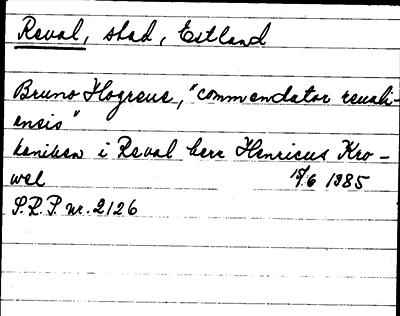 Reval, stad, Estland
Bruno Hogreue, "commendator revali-
ensis"
kaniken i Reval herr Henricus Kro-
wel 15/6 1385
S.R.P. nr. 2126